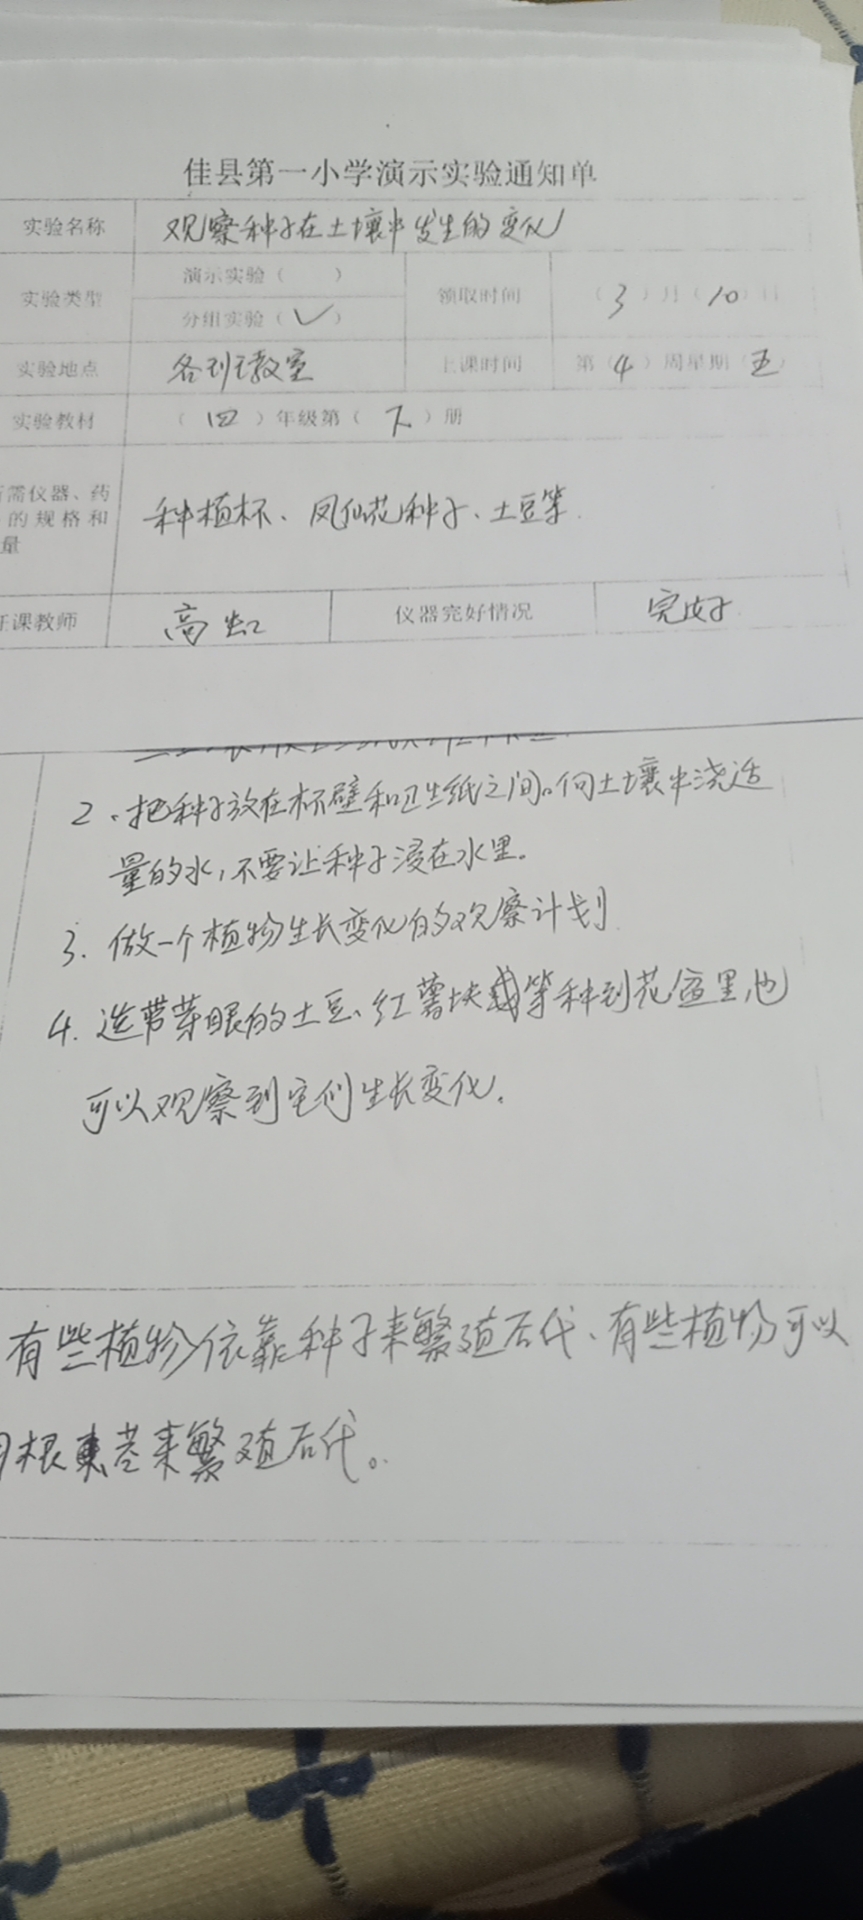 佳县第一小学演示实验通知单
实验名称 观察种子在土壤中发生的变化
实验类型 演示实验（ ） 领取时间 （3）月（10）日
分组实验（✓）
实验地点 各班教室 上课时间 第（4）周星期（五）
实验教材 （四）年级第（下）册
所需仪器、药
的规格和
量
种植杯、凤仙花种子、土豆等.
任课教师 高虹 仪器完好情况 完好
2、把种子放在杯壁和卫生纸之间。向土壤中浇适
量的水，不要让种子浸在水里。
3. 做一个植物生长变化的观察计划
4. 选带芽眼的土豆、红薯块等种到花盆里，也
可以观察到它们生长变化.
有些植物依靠种子来繁殖后代、有些植物可以
用根茎来繁殖后代。